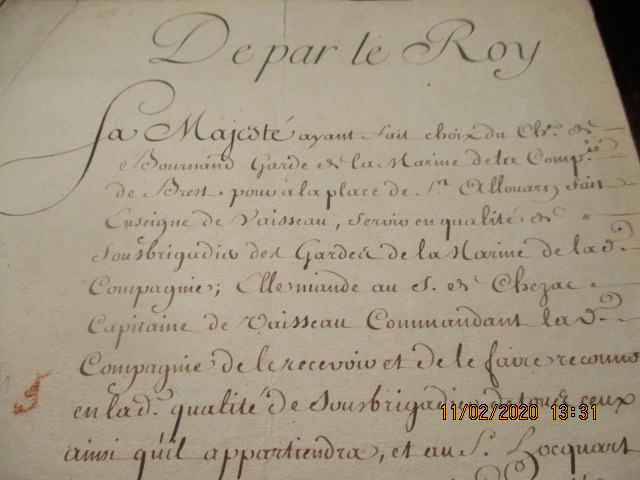 De par le Roy
Sa Majesté ayant fait choix du Chr. de
Bournand Garde de la Marine de la Comp.ie
de Brest, pour à la place de S.r Allouarn fait
Enseigne de Vaisseau, servir en qualité de
Sousbrigadier des Gardes de la Marine de la d.
Compagnie; Elle mande au S. de Chezac
Capitaine de Vaisseau Commandant la d.
Compagnie de le recevoir et de le faire reconno
en la d. qualité de Sousbrigadier de tous ceux
ainsi qu'il appartiendra, et au S. Locquart
11/02/2020 13:31